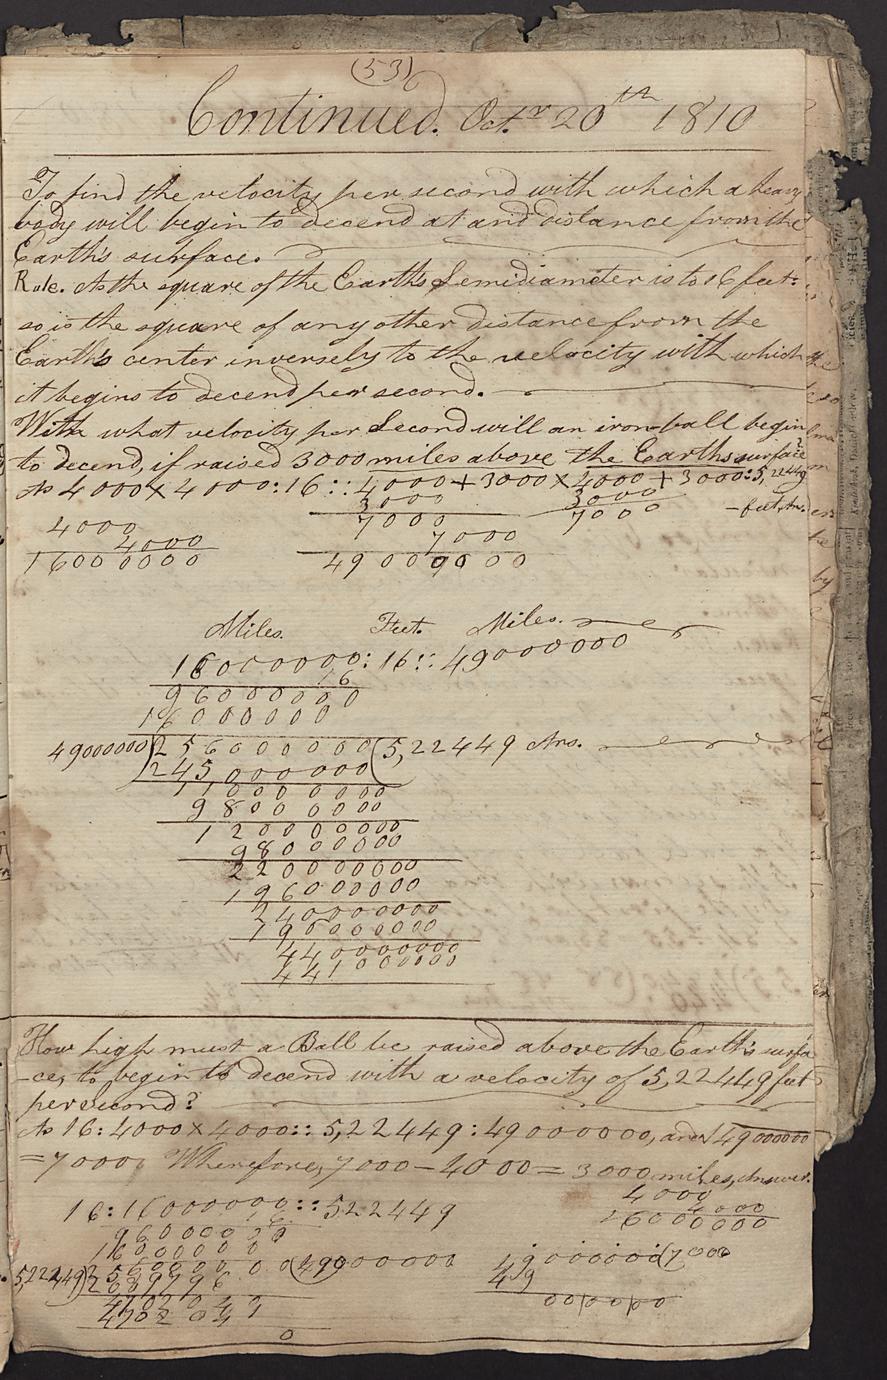 (53)
Continued. Oct.r 20th 1810
To find the velocity per second with which a heavy
body will begin to decend at and distance from the
Earth's surface.
Rule. As the square of the Earth's Semidiameter is to 16 feet:
so is the square of any other distance from the
Earth's center inversely to the velocity with which
it begins to decend per second.
With what velocity per Second will an iron-ball begin
to decend, if raised 3000 miles above the Earth's surface?
As 4000 × 4000 : 16 :: 4000 + 3000 × 4000 + 3000 : 5,22449
3000 3000 -feet, Ans.
4000 7000 7000
4000 7000
16000000 49000000
Miles. Feet. Miles.
16000000 : 16 :: 49000000
16
96000000
16000000
49000000)256000000(5,22449 Ans.
245000000
110000000
98000000
120000000
98000000
220000000
196000000
240000000
196000000
440000000
441000000
How high must a Ball be raised above the Earth's surfa
-ce, to begin to decend with a velocity of 5,22449 feet
per second?
As 16 : 4000 × 4000 :: 5,22449 : 49000000, and √49000000
= 7000, Wherefore, 7000 - 4000 = 3000 miles, Answer.
4000
16 : 16000000 :: 522449 4000
16 16000000
96000000
16000000
5,22449)256000000(49000000 49000000(7000
2089796 49
4702041 000000
4702041
0